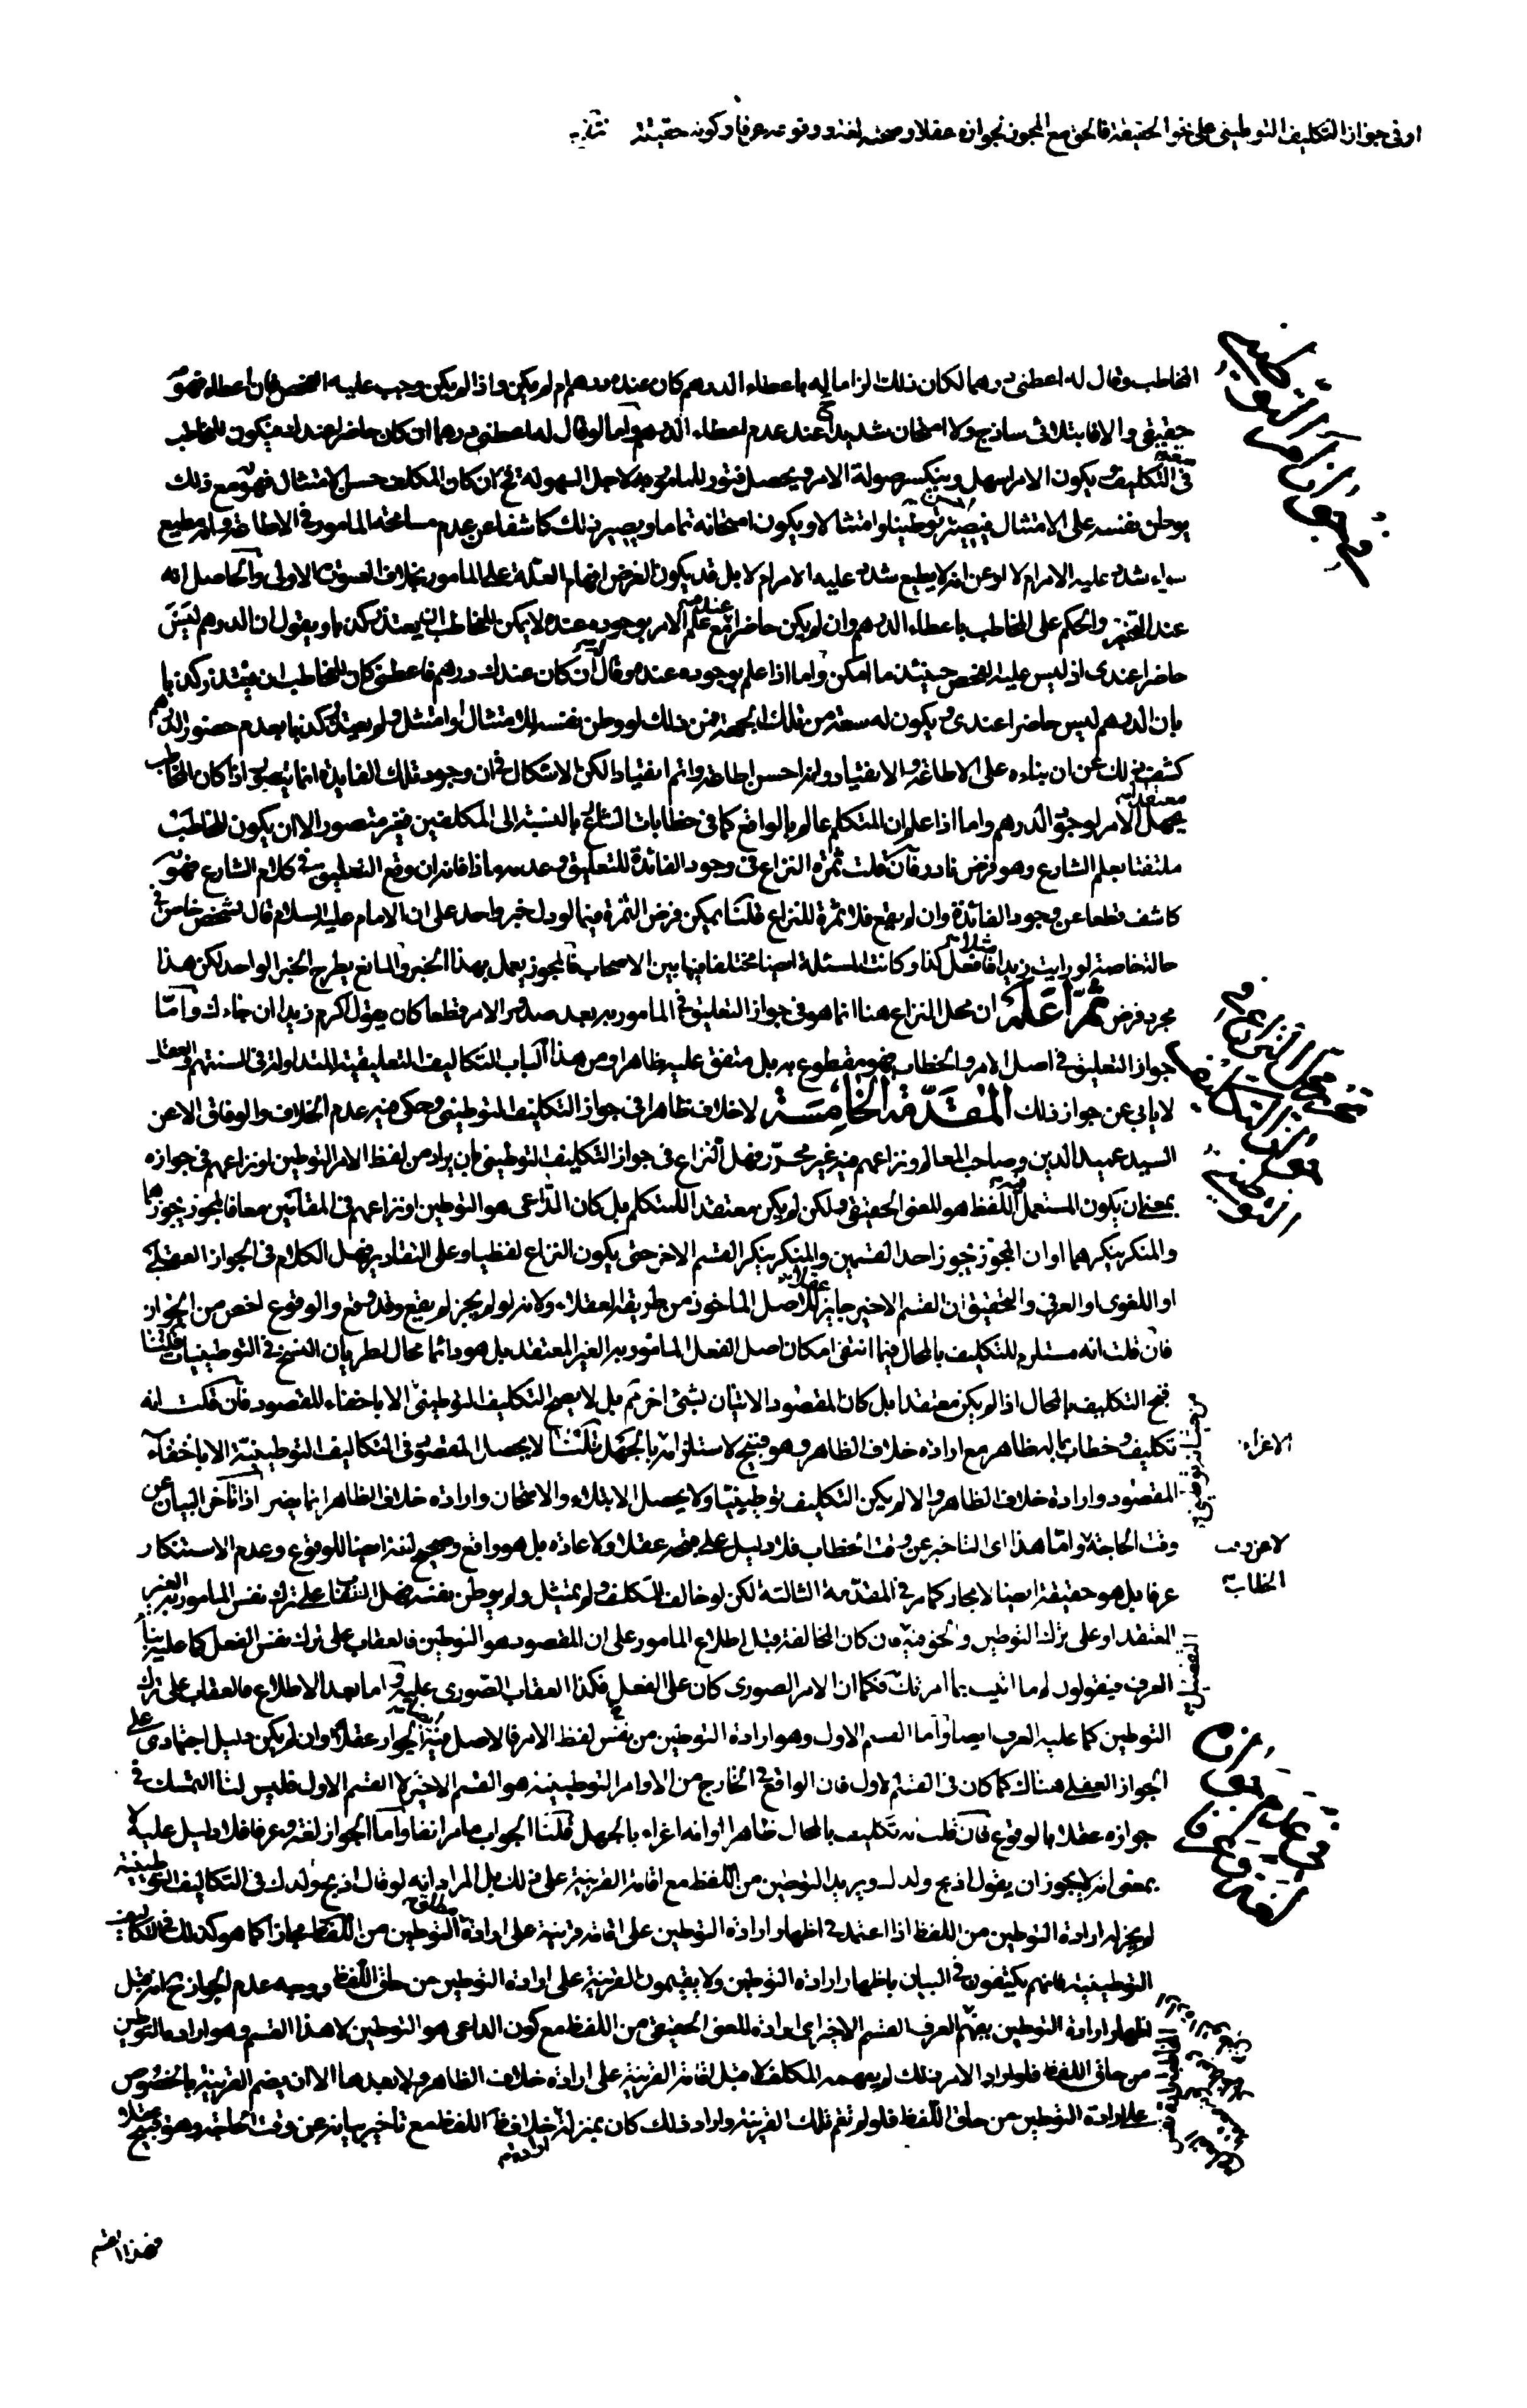 او فی جواز التکلیف التوطینی علی نحو الحقیقة فالحق مع المجوز لجوازه عقلا و صحته لغة و وقوعه عرفا و کونه حقیقة
المخاطب وقال له اعطنی درهما لکان ذلک الزاما له باعطاء الدرهم کان عنده درهم ام لم یکن واذا لم یکن وجب علیه الفحص فان اعطاه فهو
حقیقی والا فابتلائی ساذج ولا امتحان شدیدا عند عدم اعطاء الدرهم واما لو قال له اعطنی درهما ان کان حاضرا عندک فیکون للمخاطب
فی التکلیف سعة ویکون الامر سهل وینکسر صولة الامر ویحصل فتور للمامور به لاجل السهولة فح ان کان المکلف حسن الامتثال فهو مع ذلک
یوطن نفسه علی الامتثال فیصیر توطینا وامتثالا ویکون امتحانه تماما ویصیر ذلک کاشفا عن عدم مسامحة المامور فی الاطاعة وانه مطیع
سواء شدد علیه الامر ام لا لو عن انه لا یطیع شدد علیه الامر ام لا بل قد یکون الغرض افهام العلة علی المامور بخلاف الصورة الاولی والحاصل انه
عند التخییر والحکم علی المخاطب باعطاء الدرهم وان لم یکن حاضرا عنده مع علم الامر بوجوده عنده لا یمکن للمخاطب ان یعتذر کذبا ویقول ان الدرهم لیس
حاضرا عندی اذ لیس علیه الفحص حینئذ ما امکن واما اذا علم بوجوده عنده وقال ان کان عندک درهم فاعطنی کان للمخاطب ان یعتذر کذبا
بان الدرهم لیس حاضرا عندی ویکون له سعة من تلک الجهة فمن ذلک لو وطن نفسه للامتثال او امتثل ولم یعتذر کذبا بعدم حضور الدرهم
کشف ذلک عن ان بناءه علی الاطاعة والانقیاد وانه احسن اطاعة واتم انقیادا لکن الاشکال فی ان وجود تلک الفایدة انما یتصور اذا کان المخاطب
معتقدا بجهل الامر لوجود الدرهم واما اذا علم ان المتکلم عالم بالواقع کما فی خطابات الشارع بالنسبة الی المکلفین فغیر متصور الا ان یکون المخاطب
ملتفتا بعلم الشارع وهو فرض نادر فان قلت ثمرة النزاع فی وجود الفائدة للتعلیق وعدمه ماذا فانه ان وقع التعلیق فی کلام الشارع فهو
کاشف قطعا عن وجود الفائدة وان لم یقع فلا ثمرة للنزاع قلنا یمکن فرض الثمرة فیما لو دل خبر واحد علی ان الامام علیه السلام قال لشخص خاص فی
حالة خاصة لو رایت زیدا مثلا فافعل کذا وکانت المسئلة ایضا مختلفا فیها بین الاصحاب فالمجوز یعمل بهذا الخبر والمانع یطرح الخبر الواحد لکن هذا
مجرد فرض ثم اعلم ان محل النزاع هنا انما هو فی جواز التعلیق فی المامور به بعد صدور الامر قطعا کان یقول اکرم زیدا ان جاءک واما
جواز التعلیق فی اصل الامر والخطاب فهو مقطوع به بل متفق علیه ظاهرا ومن هذا الباب التکالیف التعلیقیة المتداولة فی السنتهم والعقل
لا یابی عن جواز ذلک المقدمة الخامسة لا خلاف ظاهرا فی جواز التکلیف التوطینی وحکی فیه عدم الخلاف والوفاق الا عن
السید عمید الدین وصاحب المعالم ونزاعهم فیه غیر محرر فهل النزاع فی جواز التکلیف التوطینی بان یراد من لفظ الامر التوطین او نزاعهم فی جوازه
بمعنی ان یکون المستعمل فیه اللفظ هو المعنی الحقیقی ولکن لم یکن معتقدا للمتکلم بل کان الداعی هو التوطین او نزاعهم فی المقامین معا فالمجوز یجوزهما
والمنکر ینکرهما او ان المجوز یجوز احد القسمین والمنکر ینکر القسم الاخر حتی یکون النزاع لفظیا وعلی التقادیر فهل الکلام فی الجواز العقلی
او اللغوی او العرفی والتحقیق ان القسم الاخیر جایز عقلا للاصل الماخوذ من طریقة العقلاء ولانه لو لم یجز لم یقع وقد وقع والوقوع اخص من الجواز
فان قلت انه مستلزم للتکلیف بالمحال فیما انتفی امکان اصل الفعل المامور به الغیر المعتقد بل هو دائما محال لطریان النسخ فی التوطینیات قلنا
قبح التکلیف بالمحال اذا لم یکن معتقدا بل کان المقصود الاتیان بشئ اخر ثم بل لا یصح التکلیف التوطینی الا باخفاء المقصود فان قلت انه
تکلیف وخطاب بما له ظاهر مع ارادة خلاف الظاهر وهو قبیح لاستلزامه الاغراء بالجهل قلنا لا یحصل المقصود فی التکالیف التوطینیة الا باخفاء
المقصود وارادة خلاف الظاهر والا لم یکن التکلیف توطینیا ولا یحصل الابتلاء والامتحان وارادة خلاف الظاهر انما یضر اذا تاخر البیان عن
وقت الحاجة واما هذا ای التاخیر عن وقت الخطاب فلا دلیل علی قبحه عقلا ولا عادة بل هو واقع وصحیح لغة ایضا للوقوع وعدم الاستنکار
عرفا بل هو حقیقة ایضا لا مجاز کما مر فی المقدمة الثالثة لکن لو خالف المکلف ولم یمتثل ولم یوطن نفسه فهل العقاب علی ترک نفس المامور به الغیر
المعتقد او علی ترک التوطین والحق فیه ان کان المخالفة قبل اطلاع المامور علی ان المقصود هو التوطین فالعقاب علی ترک نفس الفعل کما علیه بناء
العرف فیقولون لم ما اتیت بما امرتک فکما ان الامر الصوری کان علی الفعل فکذا العقاب الصوری علیه واما بعد الاطلاع فالعقاب علی ترک
التوطین کما علیه العرف ایضا واما القسم الاول وهو ارادة التوطین من نفس لفظ الامر فالاصل فیه الجواز عقلا وان لم یکن دلیل اجتهادی علی
الجواز العقلی هناک کما کان فی القسم الاول فان الواقع فی الخارج من الاوامر التوطینیة هو القسم الاخیر لا القسم الاول فلیس لنا التمسک فی
جوازه عقلا بالوقوع فان قلت انه تکلیف بالمحال ظاهرا او انه اغراء بالجهل قلنا الجواب ما مر انفا واما الجواز لغة وعرفا فلا دلیل علیه
بمعنی انه لا یجوز ان یقول اذبح ولدک ویرید التوطین من اللفظ مع اقامة القرینة علی ذلک بل المراد انه لو قال اذبح ولدک فی التکالیف التوطینیة
لم یجز له ارادة التوطین من اللفظ اذا اعتمد فی اظهار ارادة التوطین علی اقامة قرینة علی ارادة التوطین من اللفظ مجازا کما هو کذلک فی التکالیف
التوطینیة فانهم یکتفون فی البیان باظهار ارادة التوطین ولا یقیمون القرینة علی ارادة التوطین من حاق اللفظ ووجه عدم الجواز ح انه قبل
اظهار ارادة التوطین یفهم العرف القسم الاخیر ای ارادة المعنی الحقیقی من اللفظ مع کون الداعی هو التوطین لا هذا القسم وهو ارادة التوطین
من حاق اللفظ فلو اراد الامر ذلک لم یفهمه المکلف لا قبل اقامة القرینة علی ارادة خلاف الظاهر ولا بعدها الا ان یضم القرینة بالخصوص
علی ارادة التوطین من حاق اللفظ فلو لم تقم تلک القرینة واراد ذلک کان بمنزلة ارادة خلاف ظ اللفظ مع تاخیر بیانه عن وقت الحاجة وهو قبیح
فهذا القسم